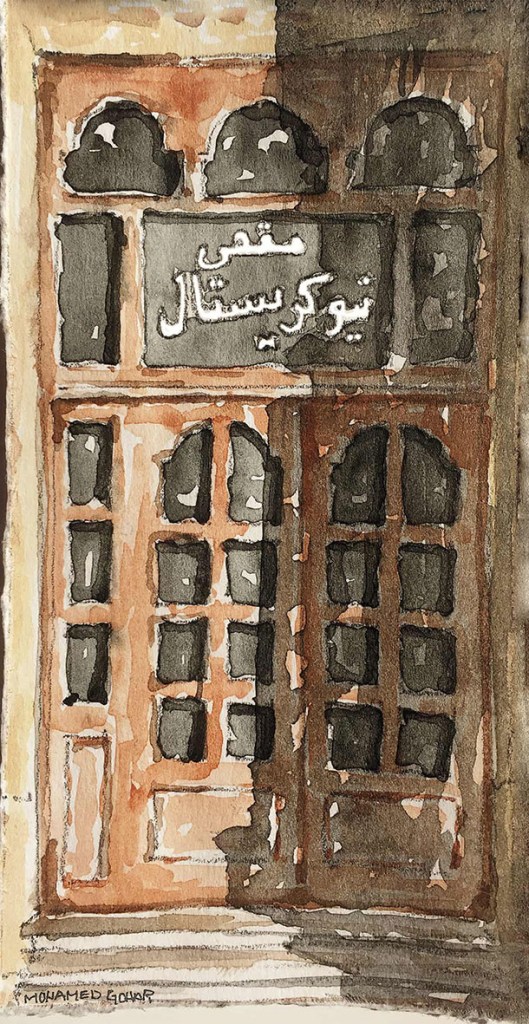 مقهى
نيو كريستال
MOHAMED GOHAR